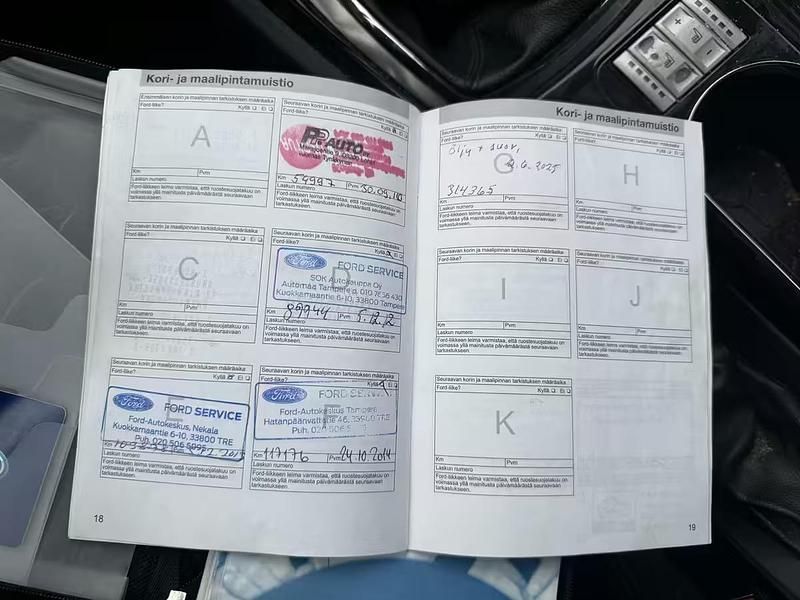 Kori- ja maalipintamuistio
Ensimmäisen korin ja maalipinnan tarkistuksen määräaika
Ford-liike?
Kyllä Ei
A
Km Pvm
Laskun numero
Ford-liikkeen leima varmistaa, että ruostesuojatakuu on
voimassa yllä mainitusta päivämäärästä seuraavaan
tarkastukseen.
Seuraavan korin ja maalipinnan tarkistuksen määräaika
Ford-liike?
Kyllä Ei
AUTO
Km 54997 Pvm 30.09.
Laskun numero
Ford-liikkeen leima varmistaa, että ruostesuojatakuu on
voimassa yllä mainitusta päivämäärästä seuraavaan
tarkastukseen.
Seuraavan korin ja maalipinnan tarkistuksen määräaika
Ford-liike?
Kyllä Ei
C
Km Pvm
Laskun numero
Ford-liikkeen leima varmistaa, että ruostesuojatakuu on
voimassa yllä mainitusta päivämäärästä seuraavaan
tarkastukseen.
Seuraavan korin ja maalipinnan tarkistuksen määräaika
Ford-liike?
Kyllä Ei
D
Ford FORD SERVICE
SOK Autokauppa Oy
Automaa Tampere p. 010 7636 430
Kuokkamaantie 6-10, 33800 Tampere
Km 89944 Pvm 5.12.12
Laskun numero
Ford-liikkeen leima varmistaa, että ruostesuojatakuu on
voimassa yllä mainitusta päivämäärästä seuraavaan
tarkastukseen.
Seuraavan korin ja maalipinnan tarkistuksen määräaika
Ford-liike?
Kyllä Ei
E
Ford FORD SERVICE
Ford-Autokeskus, Nekala
Kuokkamaantie 6-10, 33800 TRE
Puh. 020 506
Km
Laskun numero
Ford-liikkeen leima varmistaa, että ruostesuojatakuu on
voimassa yllä mainitusta päivämäärästä seuraavaan
tarkastukseen.
Seuraavan korin ja maalipinnan tarkistuksen määräaika
Ford-liike?
Kyllä Ei
F
Ford FORD
Ford-Autokeskus Tampere
Hatanpäänvaltatie 46, 33900 TRE
Puh.
Km 117176 Pvm 24.10.2014
Laskun numero
Ford-liikkeen leima varmistaa, että ruostesuojatakuu on
voimassa yllä mainitusta päivämäärästä seuraavaan
tarkastukseen.
18
Kori- ja maalipintamuistio
Seuraavan korin ja maalipinnan tarkistuksen määräaika
Ford-liike?
Kyllä Ei
Öljy + suod.
G
.6.2025
314365
Km Pvm
Laskun numero
Ford-liikkeen leima varmistaa, että ruostesuojatakuu on
voimassa yllä mainitusta päivämäärästä seuraavaan
tarkastukseen.
Seuraavan korin ja maalipinnan tarkistuksen määräaika
Ford-liike?
Kyllä Ei
H
Km Pvm
Laskun numero
Ford-liikkeen leima varmistaa, että ruostesuojatakuu on
voimassa yllä mainitusta päivämäärästä seuraavaan
tarkastukseen.
Seuraavan korin ja maalipinnan tarkistuksen määräaika
Ford-liike?
Kyllä Ei
I
Km Pvm
Laskun numero
Ford-liikkeen leima varmistaa, että ruostesuojatakuu on
voimassa yllä mainitusta päivämäärästä seuraavaan
tarkastukseen.
Seuraavan korin ja maalipinnan tarkistuksen määräaika
Ford-liike?
Kyllä Ei
J
Km Pvm
Laskun numero
Ford-liikkeen leima varmistaa, että ruostesuojatakuu on
voimassa yllä mainitusta päivämäärästä seuraavaan
tarkastukseen.
Seuraavan korin ja maalipinnan tarkistuksen määräaika
Ford-liike?
Kyllä Ei
K
Km Pvm
Laskun numero
Ford-liikkeen leima varmistaa, että ruostesuojatakuu on
voimassa yllä mainitusta päivämäärästä seuraavaan
tarkastukseen.
19